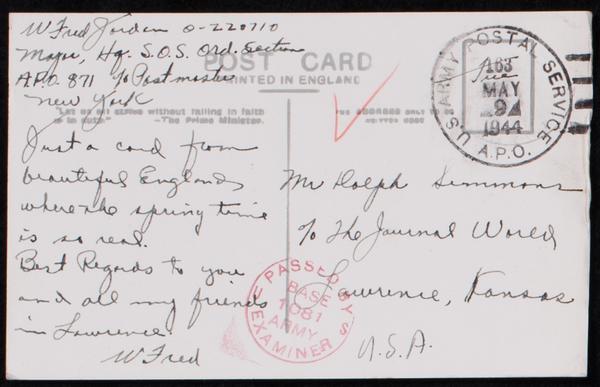 W Fred Jordan O-220710
Major, Hq. S.O.S. Ord. Section
A.P.O. 871 % Postmaster
New York
POST CARD
PRINTED IN ENGLAND
"Let us go forward without failing in faith
or in duty." —The Prime Minister.
THE ADDRESS ONLY TO BE
WRITTEN HERE
Just a card from
beautiful England
where the spring time
is so real.
Best Regards to you
and all my friends
in Lawrence.
W Fred
U.S. ARMY POSTAL SERVICE
A.P.O.
163
MAY
9
1944
Mr Dolph Simmons
% The Journal World
Lawrence, Kansas
U.S.A.
PASSED BY
BASE
1081
ARMY
EXAMINER